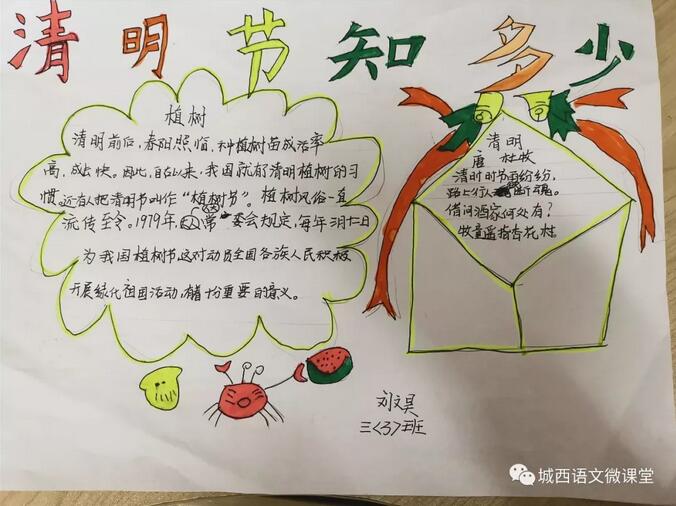 清明节知多少
植树
清明前后，春阳照临，种植树苗成活率
高，成长快。因此，自古以来，我国就有清明植树的习
惯还有人把清明节叫作“植树节”。植树风俗一直
流传至今。1979年，人大常委会规定，每年三月十二日
为我国植树节。这对动员全国各族人民积极
开展绿化祖国活动，有着十分重要的意义。
清明
唐 杜牧
清时时节雨纷纷，
路上行人断魂。
借问酒家何处有？
牧童遥指杏花村
刘文昊
三<3>班
城西语文微课堂